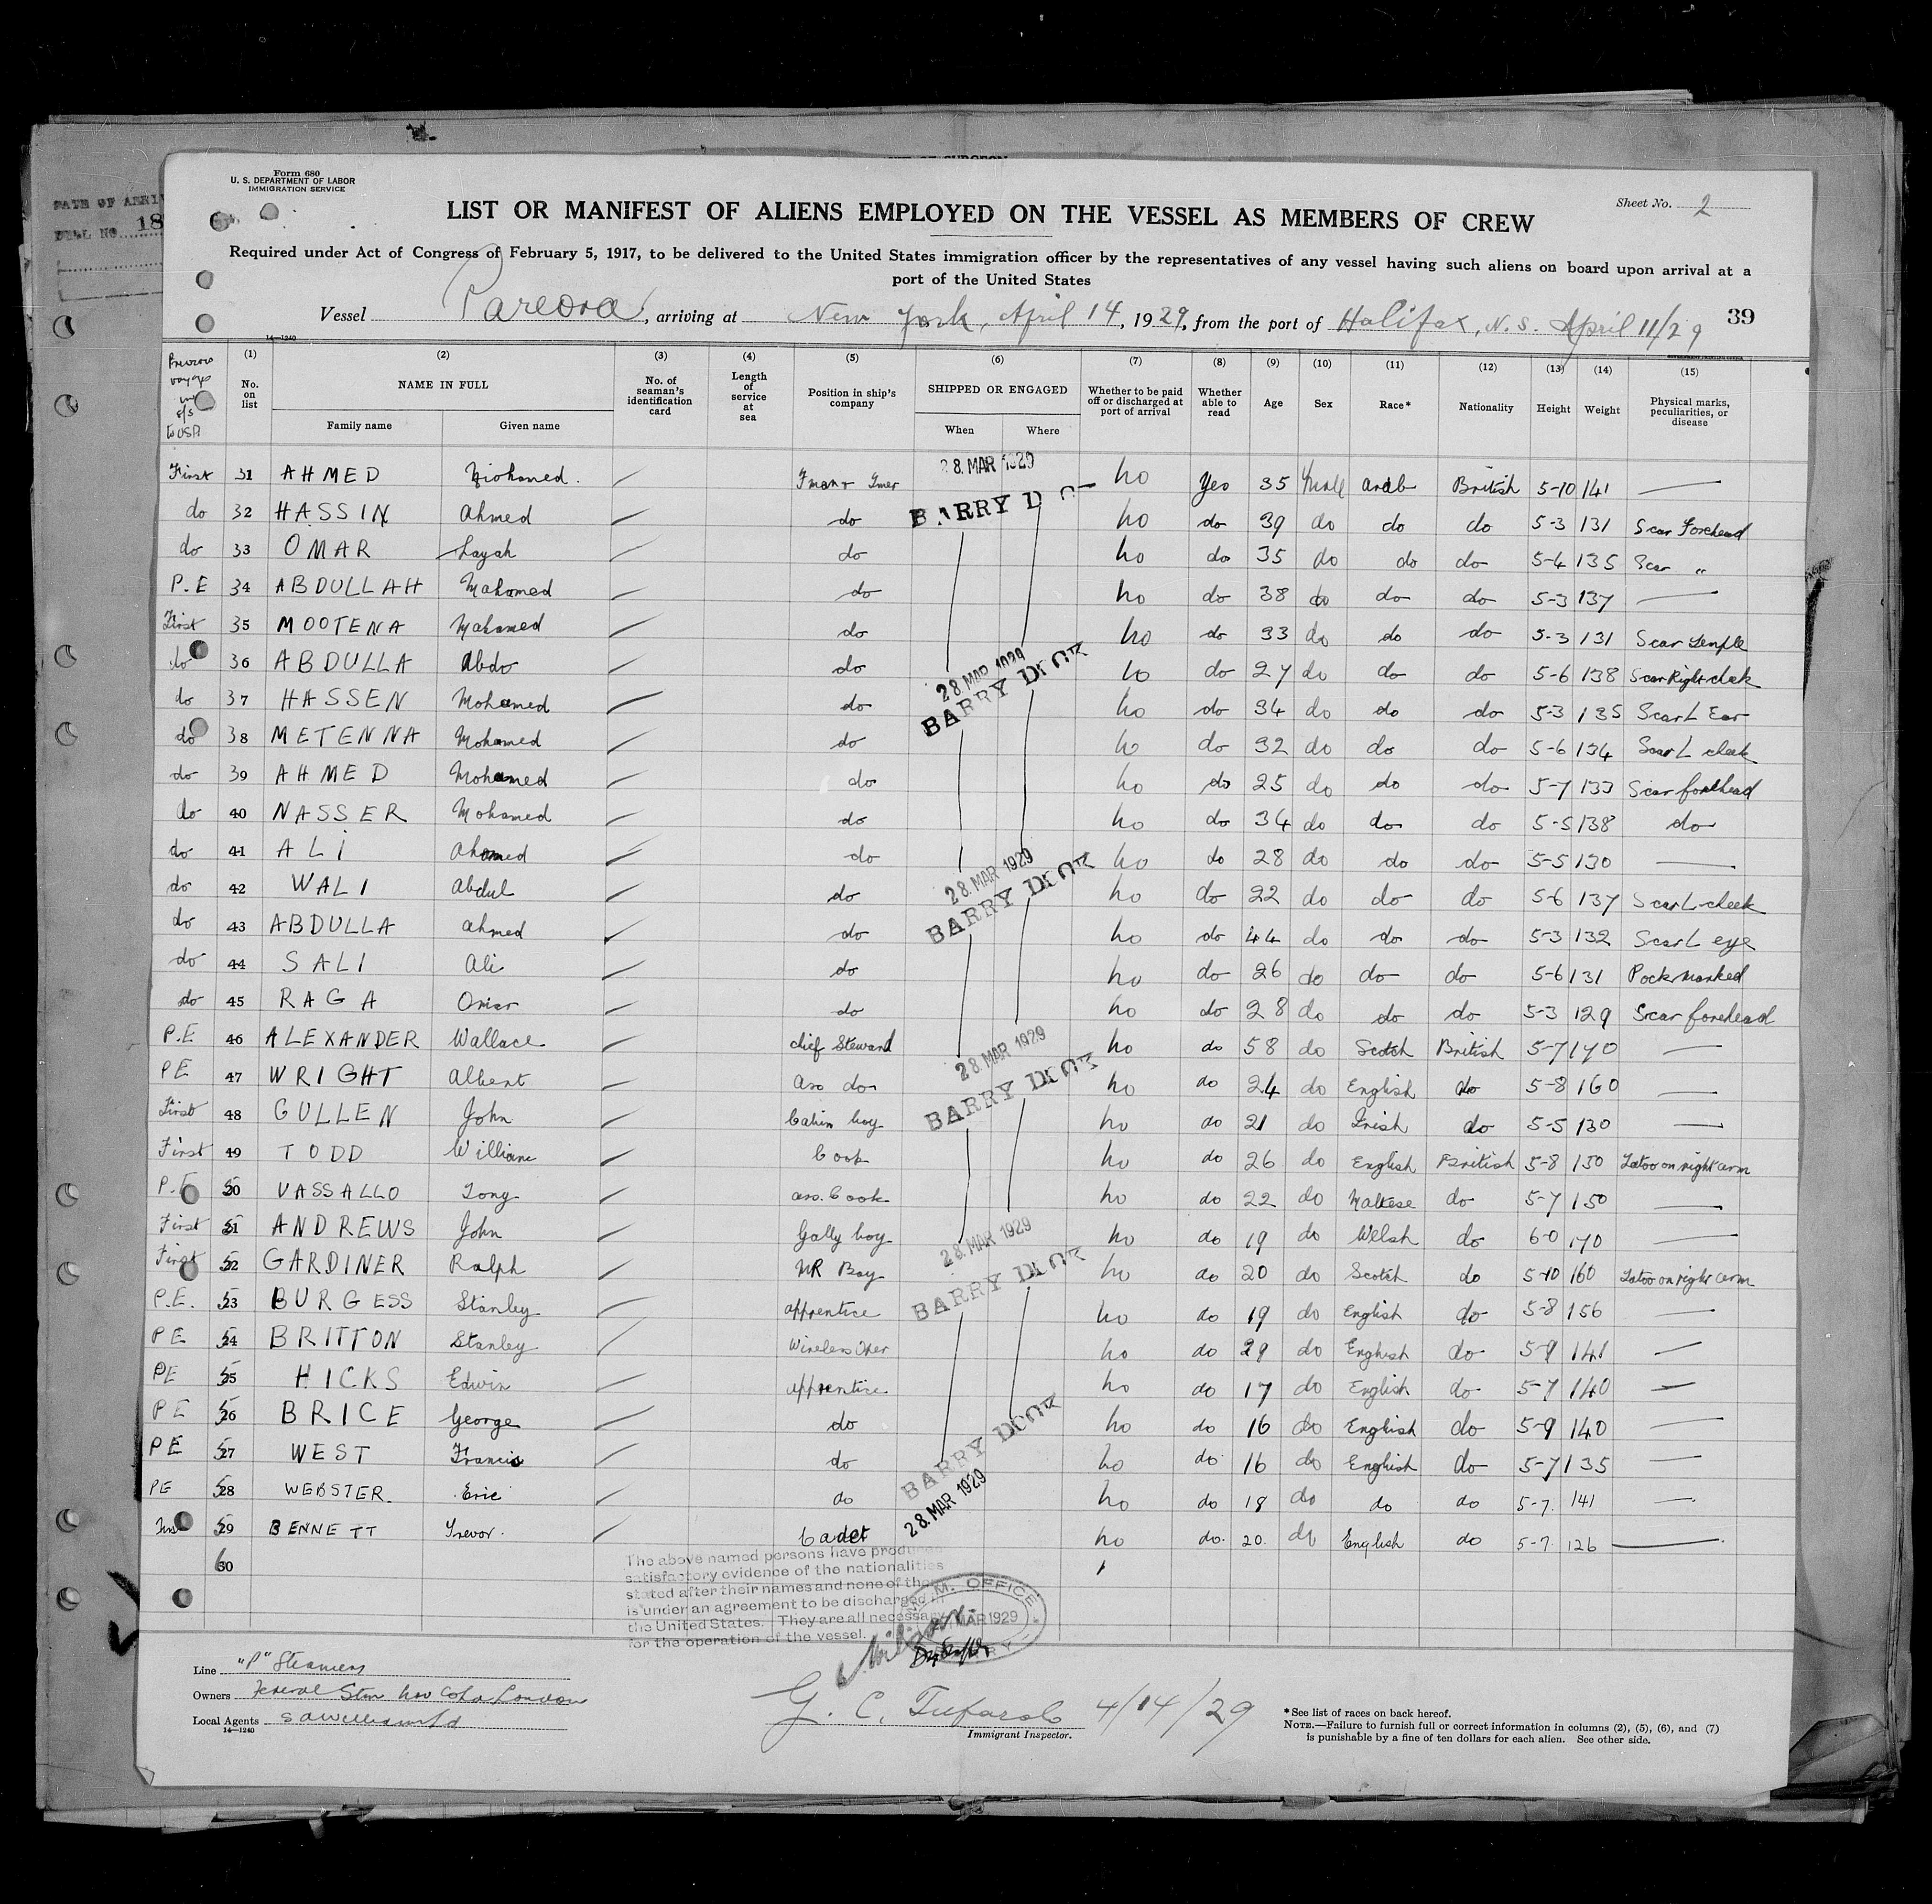 Form 680
U. S. DEPARTMENT OF LABOR
IMMIGRATION SERVICE
Sheet No. 2
LIST OR MANIFEST OF ALIENS EMPLOYED ON THE VESSEL AS MEMBERS OF CREW
Required under Act of Congress of February 5, 1917, to be delivered to the United States immigration officer by the representatives of any vessel having such aliens on board upon arrival at a
port of the United States
Vessel Pareora, arriving at New York, April 14, 1929, from the port of Halifax, N.S. April 11/29 39
14—1240
Previous voyages to USA
(1) No. on list
(2) NAME IN FULL Family name Given name
(3) No. of seaman's identification card
(4) Length of service at sea
(5) Position in ship's company
(6) SHIPPED OR ENGAGED When Where
(7) Whether to be paid off or discharged at port of arrival
(8) Whether able to read
(9) Age
(10) Sex
(11) Race*
(12) Nationality
(13) Height
(14) Weight
(15) Physical marks, peculiarities, or disease
First 31 AHMED 28 MAR 1929 no Yes 35 Male Arab British 5-10 141 —
do 32 HASSIN Ahmed do BARRY DOCK no do 39 do do do 5-3 131 Scar Forehead
do 33 OMAR Layah do no do 35 do do do 5-4 135 Scar "
P.E 34 ABDULLAH Mahomed do no do 38 do do do 5-3 137 —
First 35 MOOTENA Mahomed do no do 33 do do do 5-3 131 Scar Temple
do 36 ABDULLA Abdo do 28 MAR 1929 no do 27 do do do 5-6 138 Scar Right cheek
do 37 HASSEN Mohamed do BARRY DOCK no do 34 do do do 5-3 135 Scar L Ear
do 38 METENNA Mohamed do no do 32 do do do 5-6 134 Scar L cheek
do 39 AHMED Mohamed do no do 25 do do do 5-7 133 Scar forehead
do 40 NASSER Mohamed do no do 34 do do do 5-5 138 do
do 41 ALI Ahamed do 28 MAR 1929 no do 28 do do do 5-5 130 —
do 42 WALI Abdul do BARRY DOCK no do 22 do do do 5-6 137 Scar L cheek
do 43 ABDULLA Ahmed do no do 44 do do do 5-3 132 Scar L eye
do 44 SALI Ali do no do 26 do do do 5-6 131 Pock marked
do 45 RAGA Omar do no do 28 do do do 5-3 129 Scar forehead
P.E 46 ALEXANDER Wallace chief Steward 28 MAR 1929 no do 58 do Scotch British 5-7 170 —
PE 47 WRIGHT Albert ass do BARRY DOCK no do 24 do English do 5-8 160 —
First 48 GULLEN John Cabin boy no do 21 do Irish do 5-5 130 —
First 49 TODD William Cook no do 26 do English British 5-8 150 Tatoo on right arm
P.E 50 VASSALLO Tony ass. Cook no do 22 do Maltese do 5-7 150 —
First 51 ANDREWS John Gally boy 28 MAR 1929 no do 19 do Welsh do 6-0 170 —
First 52 GARDINER Ralph MR Boy BARRY DOCK no do 20 do Scotch do 5-10 160 Tatoo on right arm
P.E. 53 BURGESS Stanley apprentice no do 19 do English do 5-8 156 —
PE 54 BRITTON Stanley Wireless Oper no do 29 do English do 5-9 141 —
PE 55 HICKS Edwin apprentice no do 17 do English do 5-7 140 —
PE 56 BRICE George do BARRY DOCK no do 16 do English do 5-9 140 —
PE 57 WEST Francis do no do 16 do English do 5-7 135 —
PE 58 WEBSTER Eric do 28 MAR 1929 no do 18 do do do 5-7 141 —
First 59 BENNETT Trevor Cadet no do 20 do English do 5-7 126 —
60
The above named persons have produced
satisfactory evidence of the nationalities
stated after their names and none of them
is under an agreement to be discharged in
the United States. They are all necessary
for the operation of the vessel.
M. M. OFFICE
MAR 1929
BARRY
Line "P" Steamers
Owners Federal Stm Nav Co Ld London
Local Agents
14—1240
G. C. Tufarolo 4/14/29
Immigrant Inspector.
*See list of races on back hereof.
NOTE.—Failure to furnish full or correct information in columns (2), (5), (6), and (7)
is punishable by a fine of ten dollars for each alien. See other side.